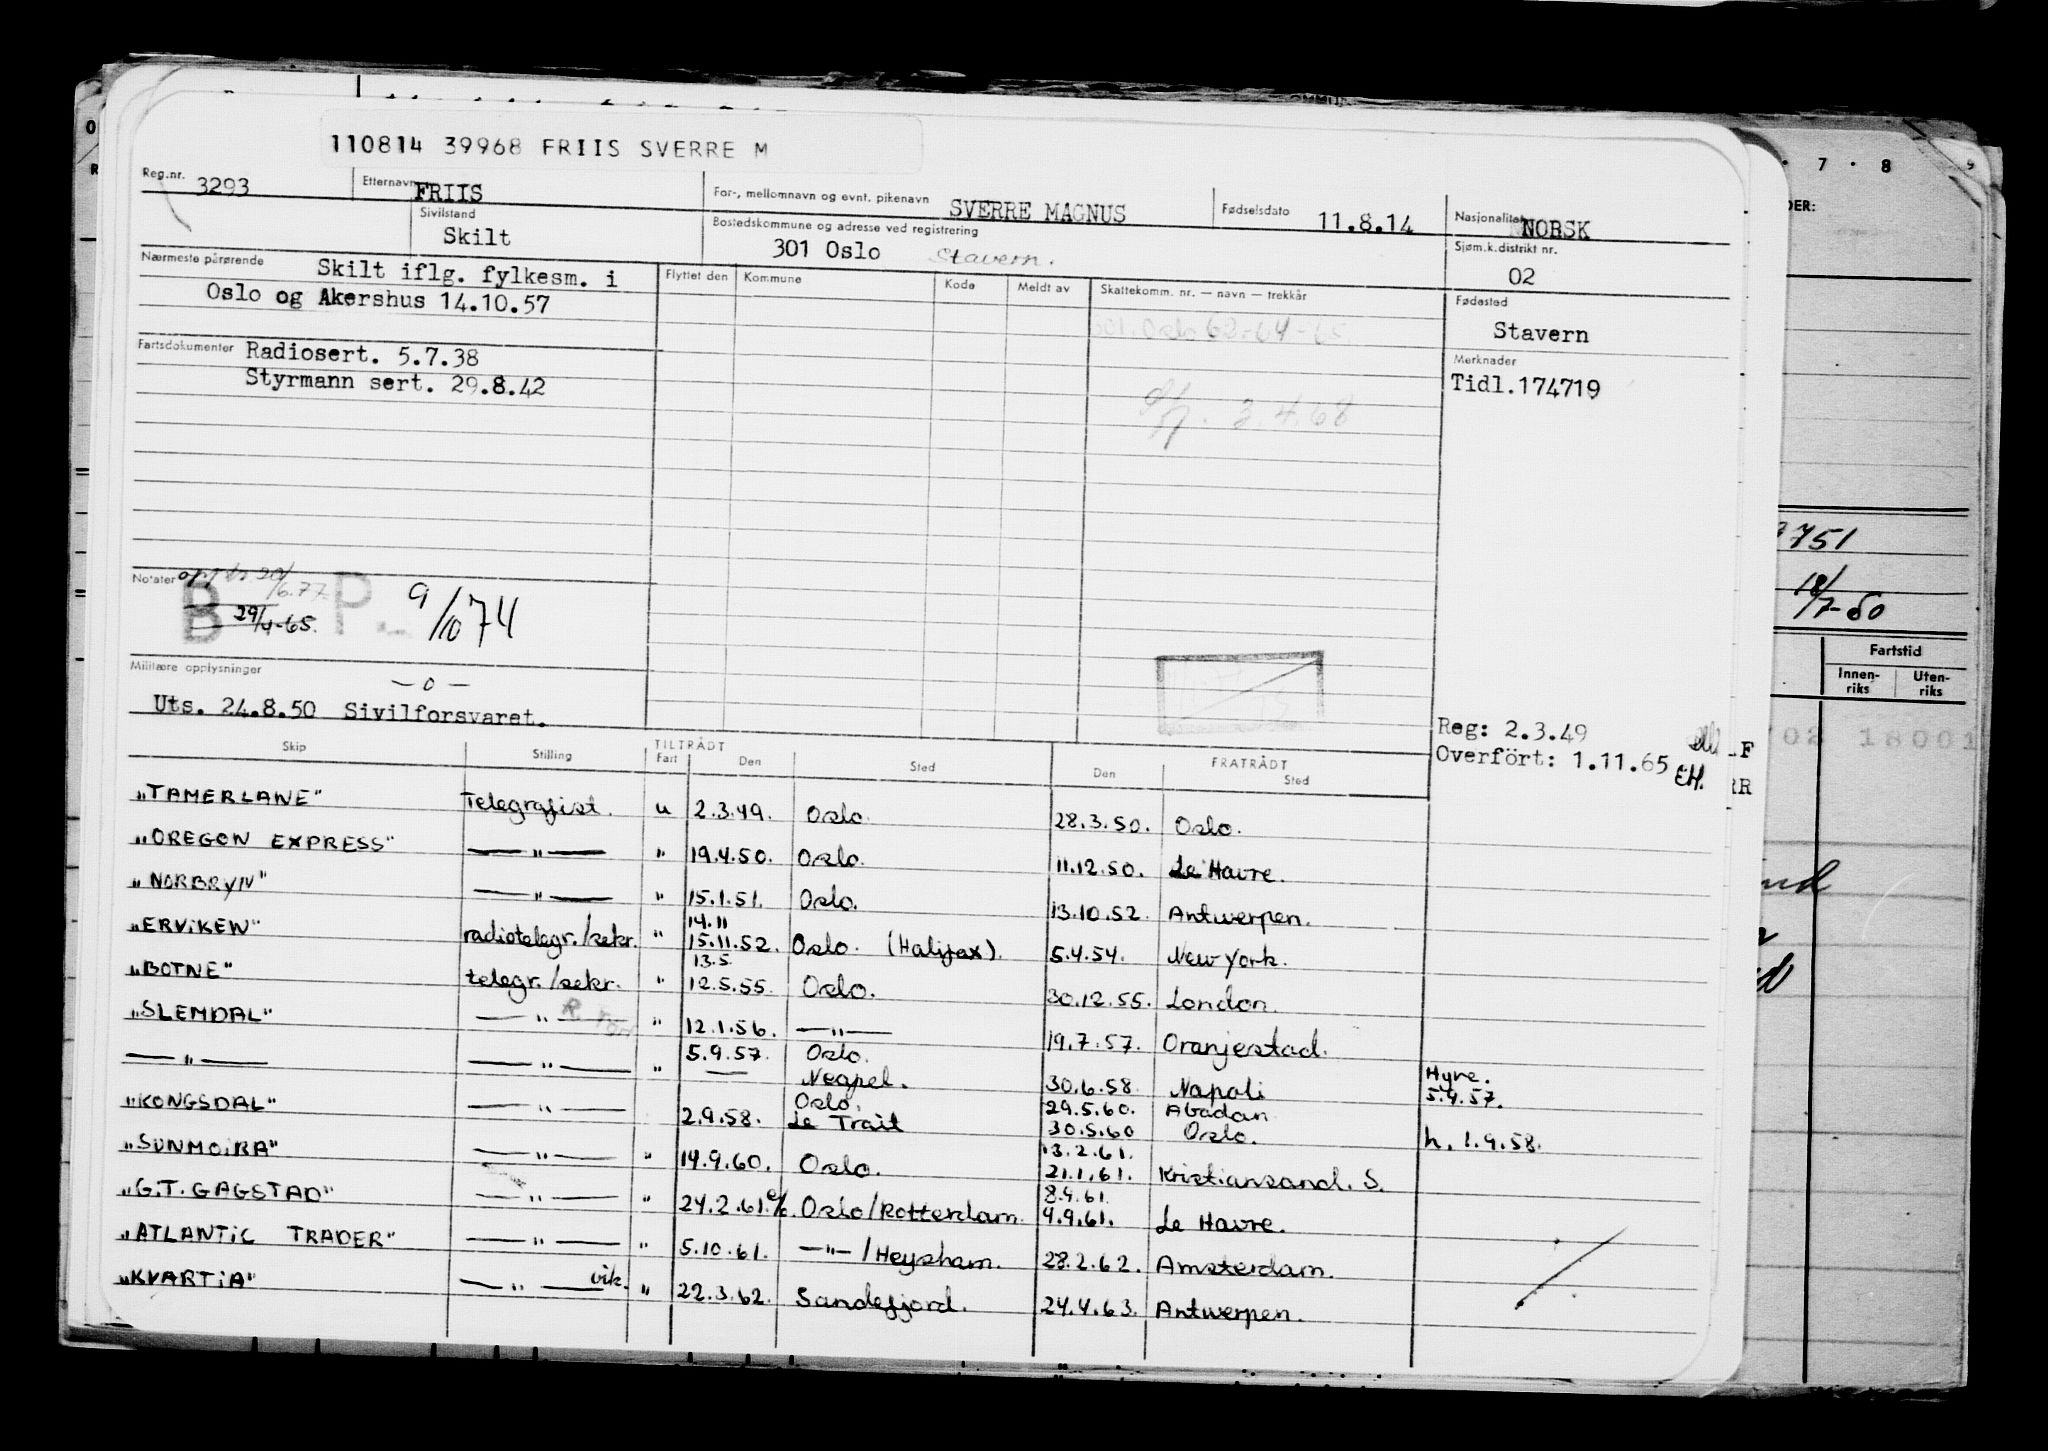 110814 39968 FRIIS SVERRE M
Reg.nr. 3293 Etternavn FRIIS For-, mellomnavn og evnt. pikenavn SVERRE MAGNUS Fødselsdato 11.8.14 Nasjonalitet NORSK
Sivilstand Skilt Bostedskommune og adresse ved registrering 301 Oslo Stavern. Sjøm.k.distrikt nr. 02
Nærmeste pårørende Skilt iflg. fylkesm. i
Oslo og Akershus 14.10.57
Flyttet den Kommune Kode Meldt av Skattekomm. nr. — navn — trekkår
Fødested
Stavern
Fartsdokumenter Radiosert. 5.7.38
Styrmann sert. 29.8.42
Merknader
Tidl.174719
3.4.68
Notater
B P. 9/10 74
29/4-65.
Militære opplysninger
— o —
Uts. 24.8.50 Sivilforsvaret.
Reg: 2.3.49
Overført: 1.11.65 EH.
Skip Stilling TILTRÅDT Fart Den Sted FRATRÅDT Den Sted
"TAMERLANE" Telegrafist. u 2.3.49. Oslo. 28.3.50. Oslo.
"OREGON EXPRESS" —"— " 19.4.50. Oslo. 11.12.50. Le Havre.
"NORBRYN" —"— " 15.1.51. Oslo. 13.10.52. Antwerpen.
14.11
"ERVIKEN" radiotelegr./sekr. " 15.11.52. Oslo. (Halifax). 5.4.54. New York.
13.5.
"BOTNE" telegr./sekr. " 12.5.55. Oslo. 30.12.55. London.
"SLEMDAL" —"— " 12.1.56. —"— 19.7.57. Oranjestad.
—"— —"— " 5.9.57. Oslo.
— Neapel. 30.6.58. Napoli Hyre. 5.4.57.
Oslo. 29.5.60. Abadan
"KONGSDAL" —"— 2.9.58. Le Trait 30.5.60 Oslo. h. 1.9.58.
13.2.61.
"SUNMOIRA" —"— " 14.9.60. Oslo. 21.1.61. Kristiansand. S.
8.9.61.
"G.T. GAGSTAD" —"— " 24.2.61. Oslo/Rotterdam. 9.9.61. Le Havre.
"ATLANTIC TRADER" —"— " 5.10.61. —"—/Heysham. 28.2.62. Amsterdam.
"KVARTIA" —"— vik. " 22.3.62. Sandefjord. 24.4.63. Antwerpen.
7 · 8 9
751
18/7-60
Fartstid
Innen-riks Uten-riks
18001